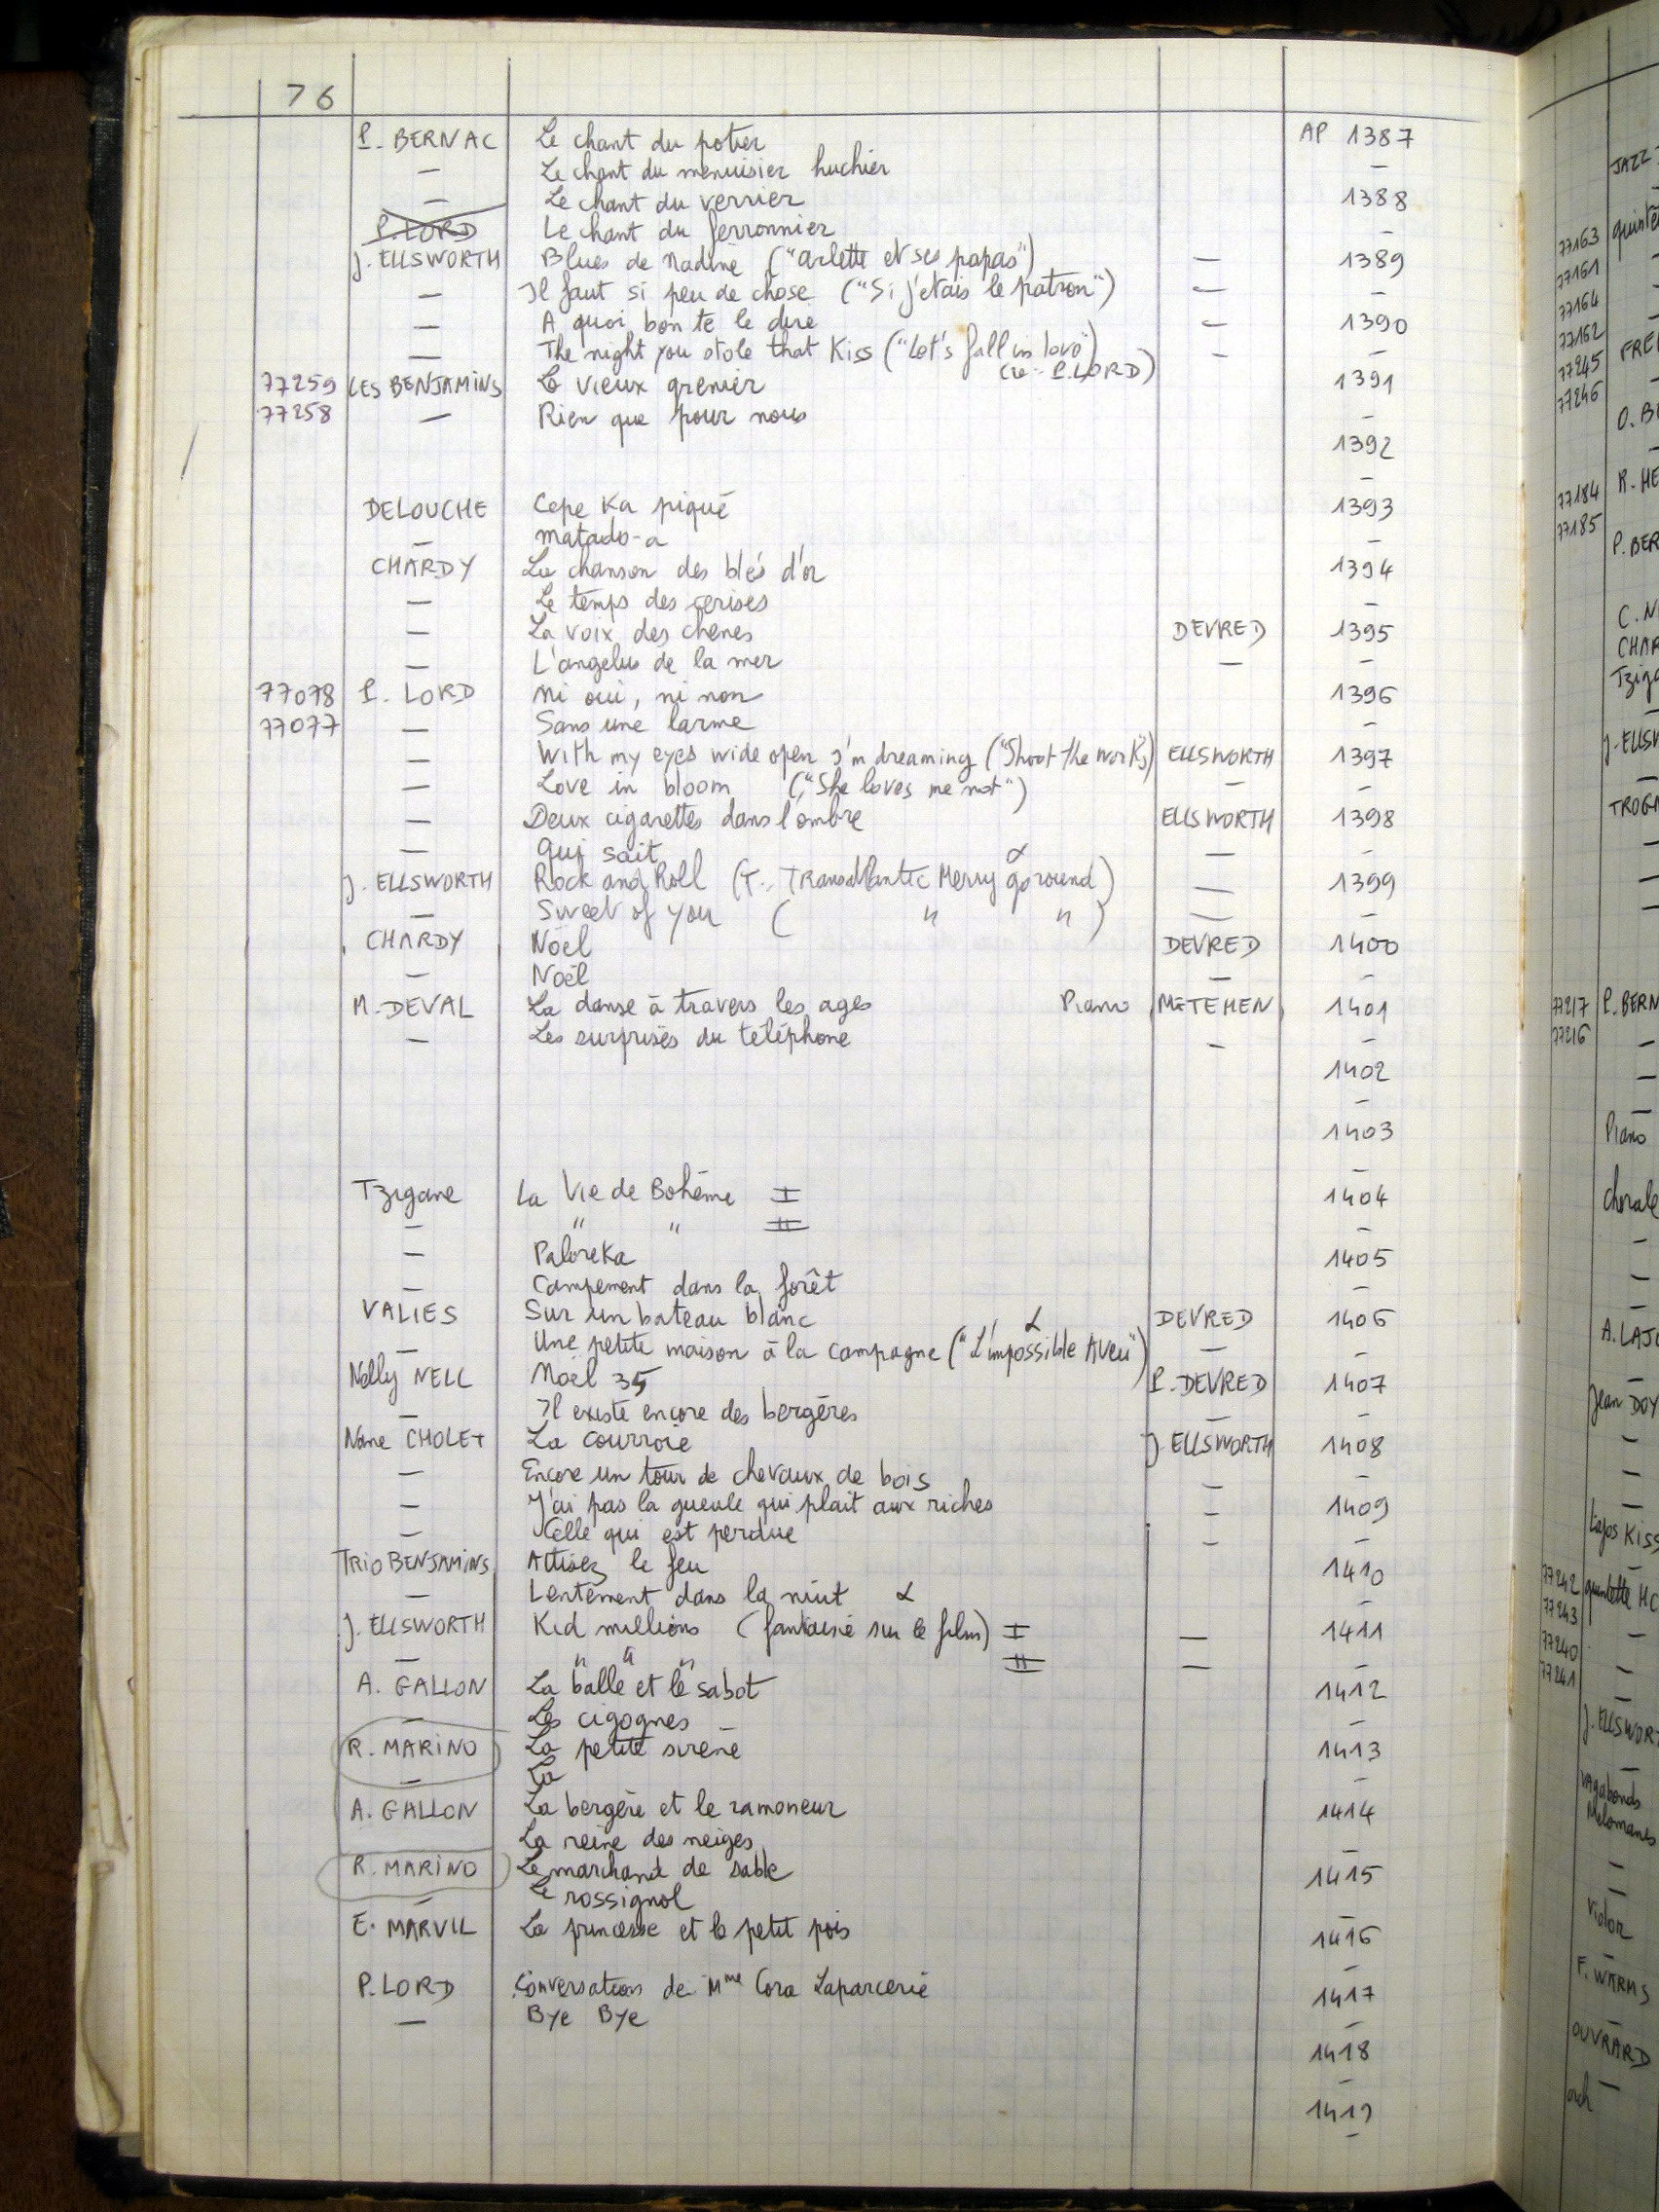 76
P. BERNAC Le chant du potier AP 1387
— Le chant du menuisier huchier —
— Le chant du verrier 1388
P. LORD Le chant du ferronnier —
J. ELLSWORTH Blues de Nadine ("Arlette et ses papas") — 1389
— Il faut si peu de chose ("Si j'étais le patron") — —
— A quoi bon te le dire — 1390
— The night you stole that Kiss ("Let's fall in love") — —
P. LORD)
77259 LES BENJAMINS Le vieux grenier 1391
77258 — Rien que pour nous —
1392
—
DELOUCHE Cepe Ka piqué 1393
— matado-a —
CHARDY La chanson des blés d'or 1394
— Le temps des cerises —
— La voix des chenes DEVRED 1395
— L'angelus de la mer — —
77078 P. LORD Ni oui, ni non 1396
77077 — Sans une larme —
— With my eyes wide open I'm dreaming ("Shoot the works") ELLSWORTH 1397
— Love in bloom ("She loves me not") — —
— Deux cigarettes dans l'ombre ELLSWORTH 1398
— Qui sait — —
J. ELLSWORTH Rock and Roll (T. Transatlantic Merry go round) — 1399
— Sweet of you ( " " ) — —
CHARDY Noël DEVRED 1400
— Noël — —
M. DEVAL La danse à travers les ages Piano METEHEN 1401
— Les surprises du téléphone — —
1402
—
1403
—
Tzigane La Vie de Bohême I 1404
— " " II —
— Paloreka 1405
— Campement dans la forêt —
VALIES Sur un bateau blanc DEVRED 1406
— Une petite maison à la campagne ("L'impossible Aveu") — —
Nelly NELL Noël 35 P. DEVRED 1407
— Il existe encore des bergères — —
Nane CHOLET La courroie J. ELLSWORTH 1408
— Encore un tour de chevaux de bois — —
— J'ai pas la gueule qui plait aux riches — 1409
— Celle qui est perdue — —
TRIO BENJAMINS Attisez le feu 1410
— Lentement dans la nuit —
J. ELLSWORTH Kid millions (fantaisie sur le film) I — 1411
— " " " II — —
A. GALLON La balle et le sabot 1412
— Les cigognes —
R. MARINO La petite sirène 1413
— La —
A. GALLON La bergère et le ramoneur 1414
La reine des neiges —
R. MARINO Le marchand de sable 1415
— Le rossignol —
E. MARVIL La princesse et le petit pois 1416
—
P. LORD Conversations de Mme Cora Laparcerie 1417
— Bye Bye —
1418
—
1419
—
JAZZ
77163
77161
77164
77162
77245
77246
77184
77185
P. BER
CHAR
J. ELLSW
77217 P. BERN
77216 —
Piano
chorale
A. LAJO
Jean DOY
Lajos Kiss
77242 quintette HC
77243
77240
77241
J. ELLSWOR
Vagabonds
Mélomanes
Violon
F. WARMS
OUVRARD
orch